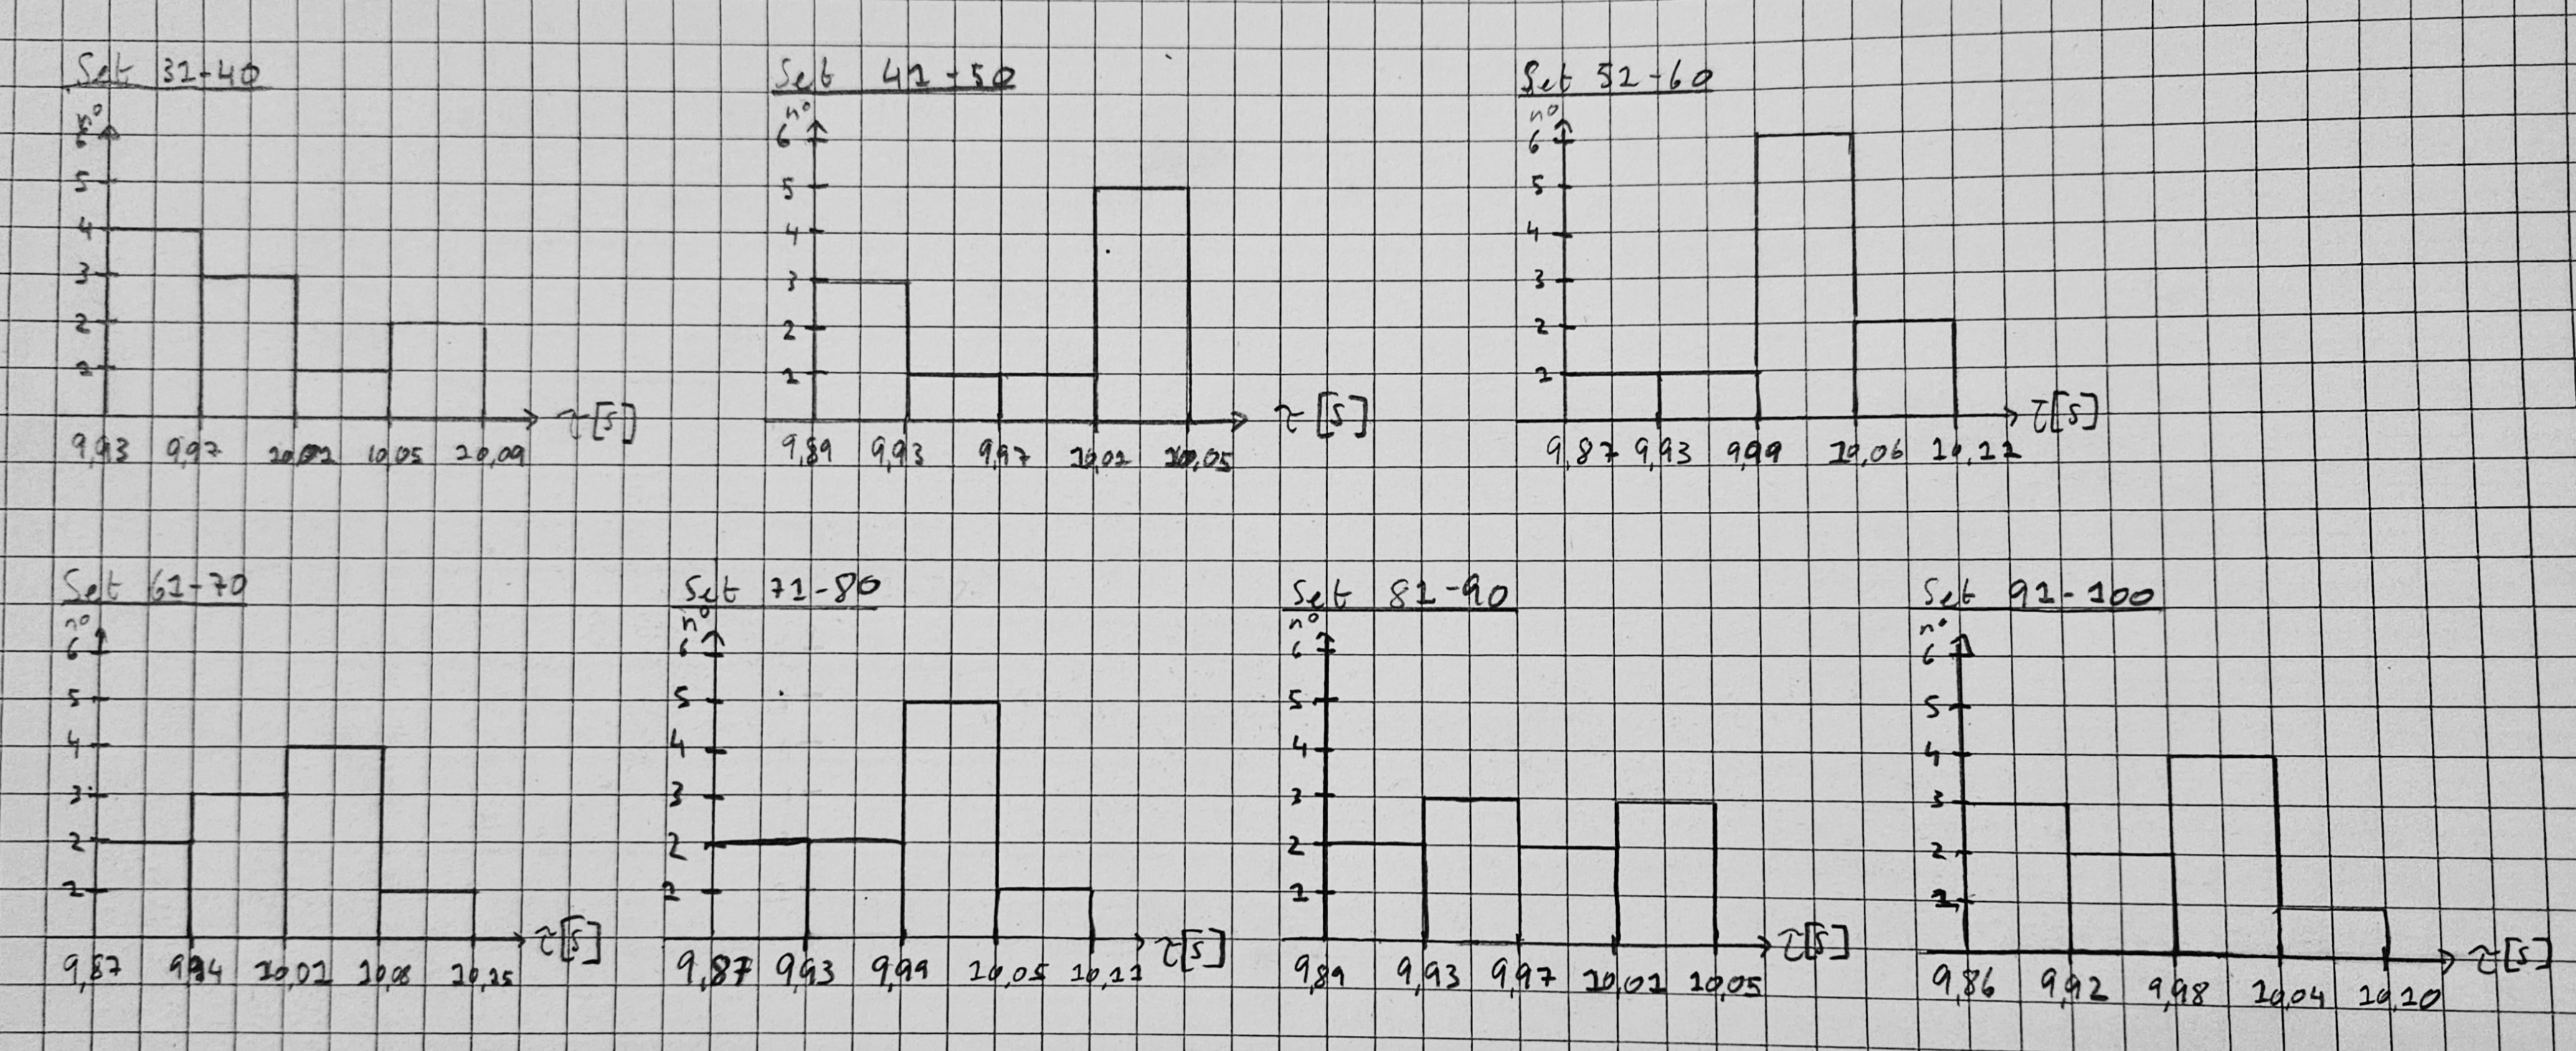 Set 31-40
n°
6
5
4
3
2
1
τ[s]
9,93 9,97 10,01 10,05 10,09
Set 41-50
n°
6
5
4
3
2
1
τ[s]
9,89 9,93 9,97 10,01 10,05
Set 51-60
n°
6
5
4
3
2
1
τ[s]
9,87 9,93 9,99 10,06 10,11
Set 61-70
n°
6
5
4
3
2
1
τ[s]
9,87 9,94 10,01 10,08 10,15
Set 71-80
n°
6
5
4
3
2
1
τ[s]
9,87 9,93 9,99 10,05 10,11
Set 81-90
n°
6
5
4
3
2
1
τ[s]
9,89 9,93 9,97 10,01 10,05
Set 91-100
n°
6
5
4
3
2
1
τ[s]
9,86 9,92 9,98 10,04 10,10